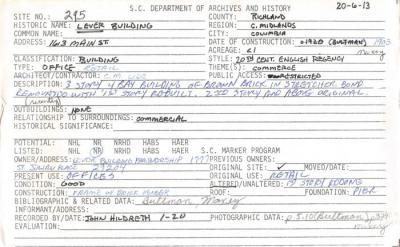 S.C. DEPARTMENT OF ARCHIVES AND HISTORY 20-6-13
SITE NO.: 295 COUNTY: RICHLAND
HISTORIC NAME: LEVER BUILDING REGION: C. MIDLANDS
COMMON NAME: CITY: COLUMBIA
ADDRESS: 1613 MAIN ST. DATE OF CONSTRUCTION: C1920 (BULTMAN) 1903
ACREAGE: <1 Maxey
CLASSIFICATION: BUILDING STYLE: 20TH CENT. ENGLISH REGENCY
TYPE: OFFICE RETAIL THEME(S): COMMERCE
ARCHITECT/CONTRACTOR: PUBLIC ACCESS: RESTRICTED
DESCRIPTION: 3 STORY 4 BAY BUILDING OF BROWN BRICK IN STRETCHER BOND
RENOVATED WITH 1ST STORY REBUILT. 2ND STORY AND ABOVE ORIGINAL.
OUTBUILDINGS: NONE
RELATIONSHIP TO SURROUNDINGS: COMMERCIAL
HISTORICAL SIGNIFICANCE:
POTENTIAL: NHL NR NRHD HABS HAER
LISTED: NHL NR NRHD HABS HAER S.C. MARKER PROGRAM
OWNER/ADDRESS: LEVER BUILDING PARTNERSHIP 1777 PREVIOUS OWNERS:
ST. JULIAN PLACE 29204 ORIGINAL SITE ✓ MOVED/DATE:
PRESENT USE: OFFICES ORIGINAL USE: RETAIL
CONDITION: GOOD ALTERED/UNALTERED: 1ST STORY REDONE
CONSTRUCTION: ROOF: FOUNDATION: PIER
BIBLIOGRAPHIC & RELATED DATA: Bultman, Maxey
INFORMANT/ADDRESS:
RECORDED BY/DATE: JOHN HILDRETH 1-20 PHOTOGRAPHIC DATA: p. 5-10 (Bultman)